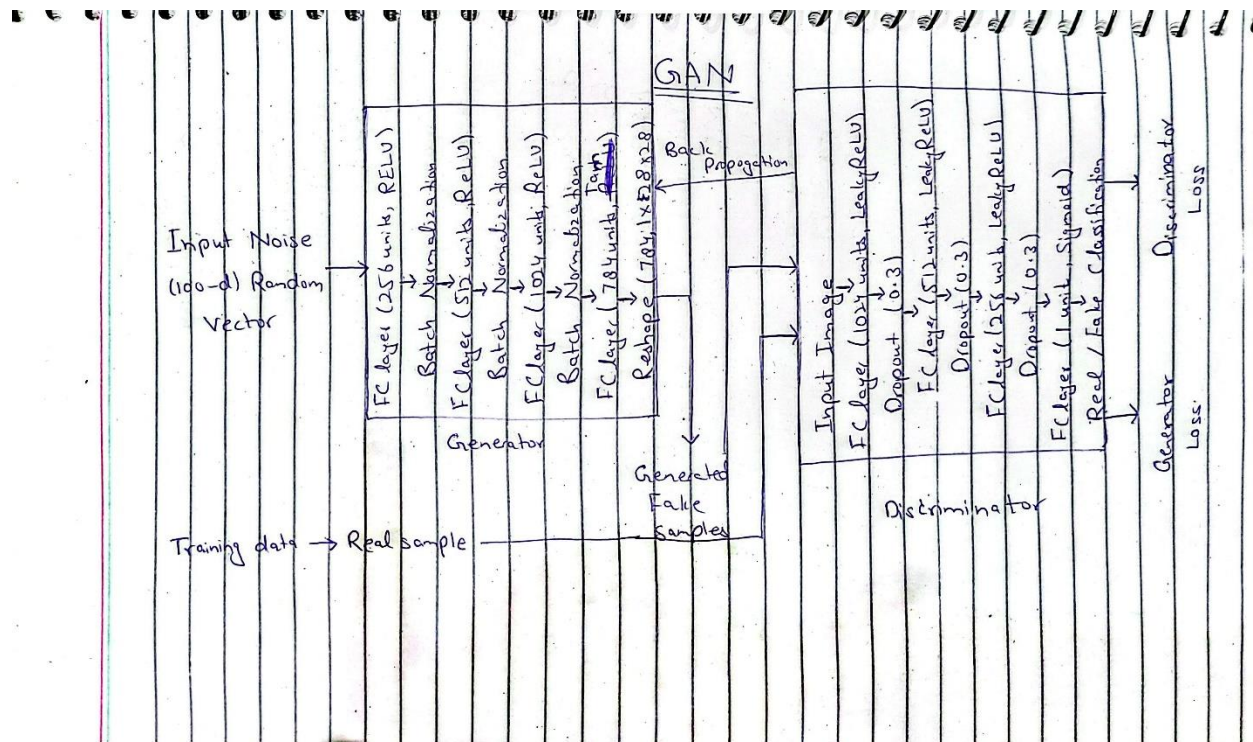 GAN
Input Noise
(100-d) Random
Vector
FC layer (256 units, RELU)
Batch Normalization
FC layer (512 units, ReLU)
Batch Normalization
FC layer (1024 units, ReLU)
Batch Normalization
FC layer (784 units, Tanh
Reshape (784, 1x28x28)
Generator
Back
Propogation
Generated
Fake
Samples
Training data → Real sample
Input Image
FC layer (1024 units, LeakyReLU)
Dropout (0.3)
FC layer (512 units, LeakyReLU)
Dropout (0.3)
FC layer (256 units, LeakyReLU)
Dropout (0.3)
FC layer (1 unit, Sigmoid)
Real / Fake Clasification
Discriminator
Discriminator
Loss
Generator
Loss.